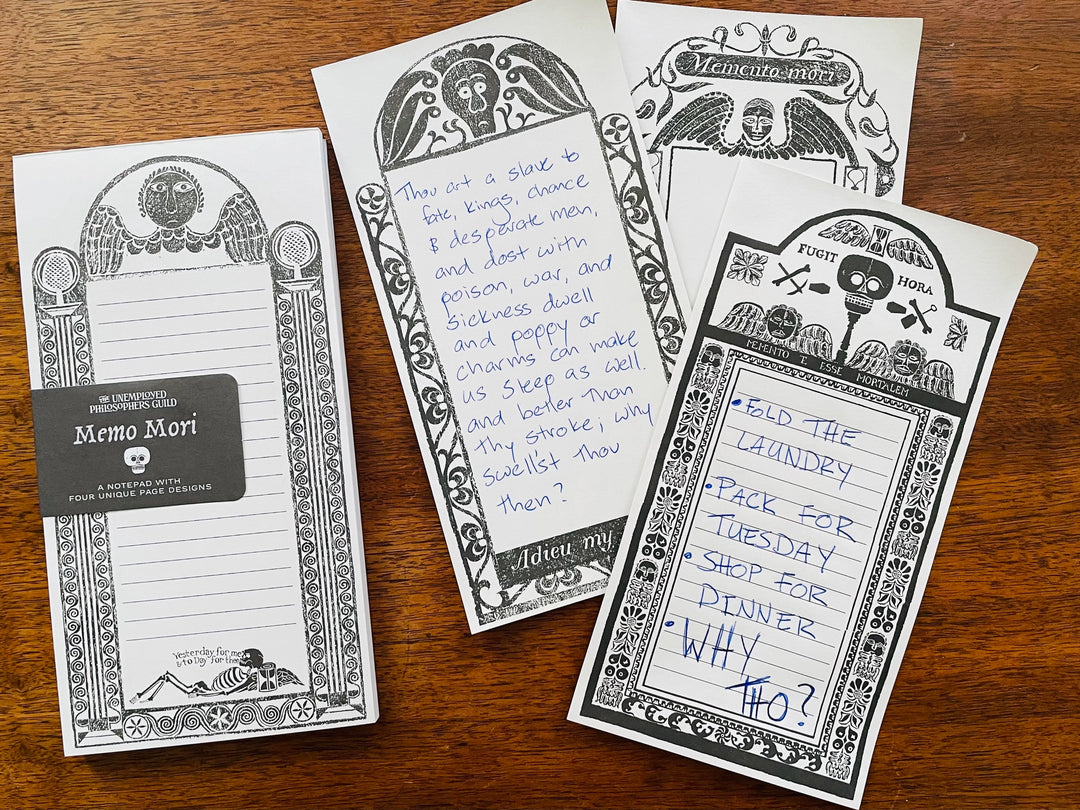 THE UNEMPLOYED
PHILOSOPHERS GUILD
Memo Mori
A NOTEPAD WITH
FOUR UNIQUE PAGE DESIGNS
Yesterday for me
& to Day for thee
Thou art a slave to
fate, kings, chance
& desperate men,
and dost with
poison, war, and
sickness dwell
and poppy or
charms can make
us sleep as well.
and better than
thy stroke; why
swell'st thou
then?
Adieu my
Memento mori
FUGIT
HORA
MEMENTO T ESSE MORTALEM
• FOLD THE
LAUNDRY
• PACK FOR
TUESDAY
• SHOP FOR
DINNER
• WHY
THO?